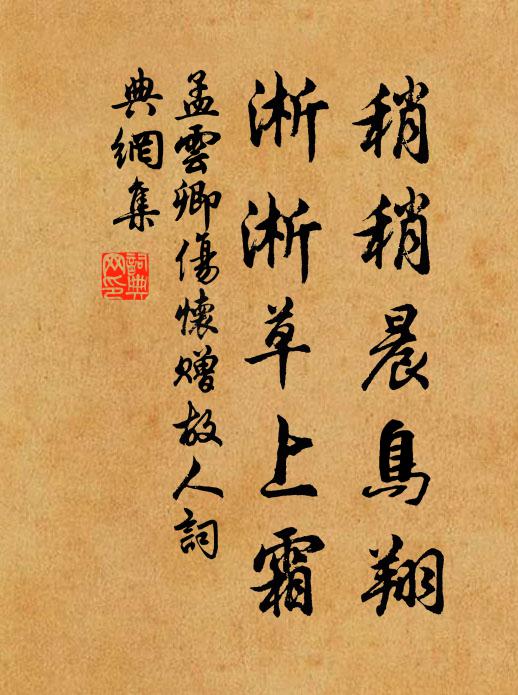 稍稍晨鳥翔
淅淅草上霜
孟雲卿傷懷贈故人詞
典網集
詞典
网印